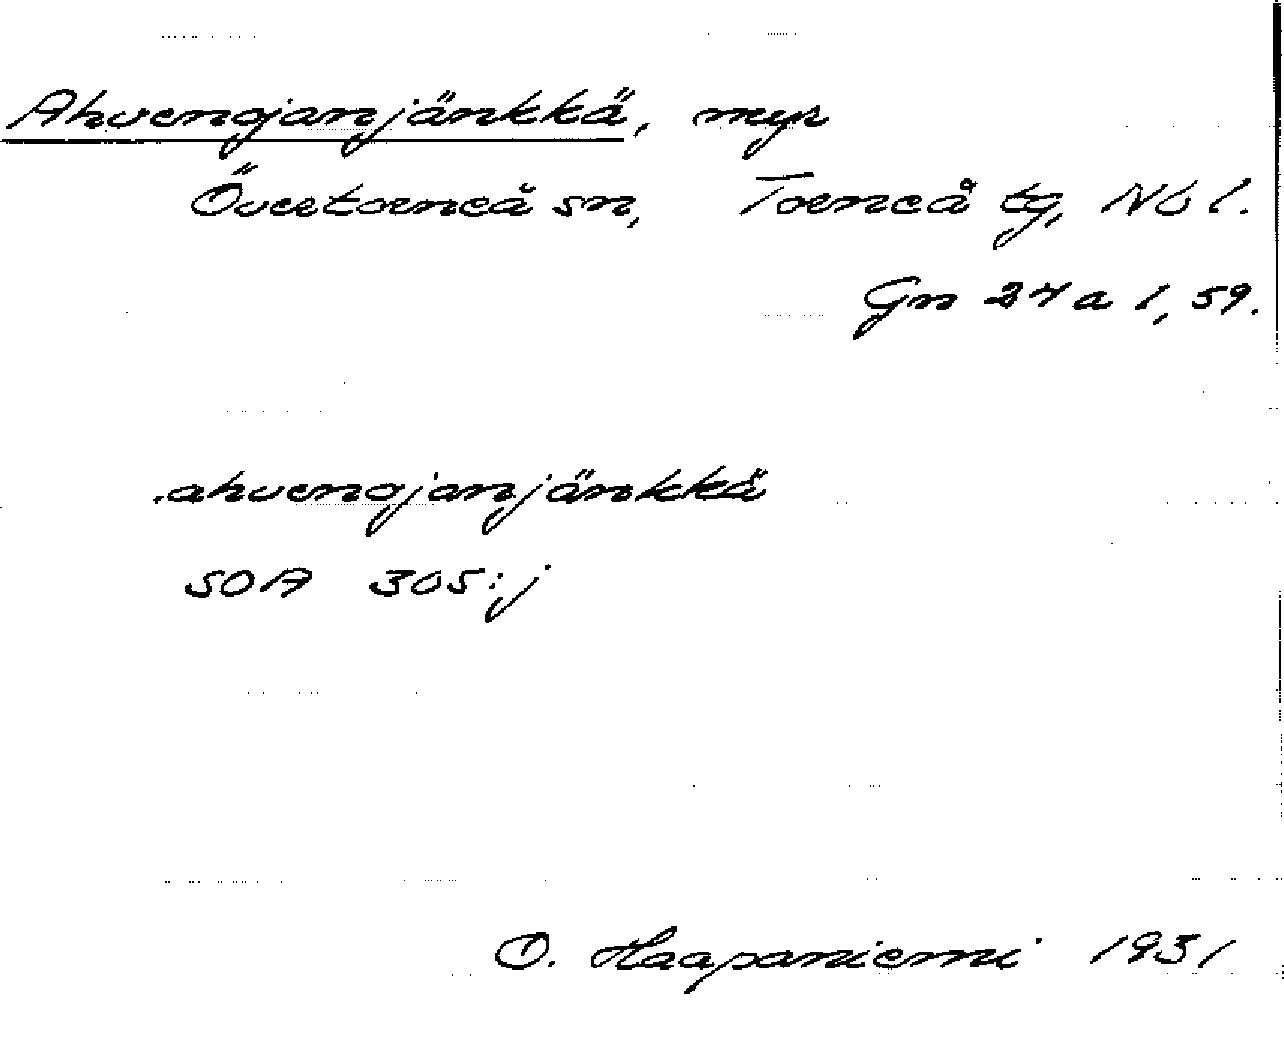 Ahvenojanjänkkä, myr
Övertorneå sn, Torneå tg, Nb l.
Gn 27 a 1, 59.
.ahvenojanjänkkä
SOA 305:j
O. Haapaniemi 1931